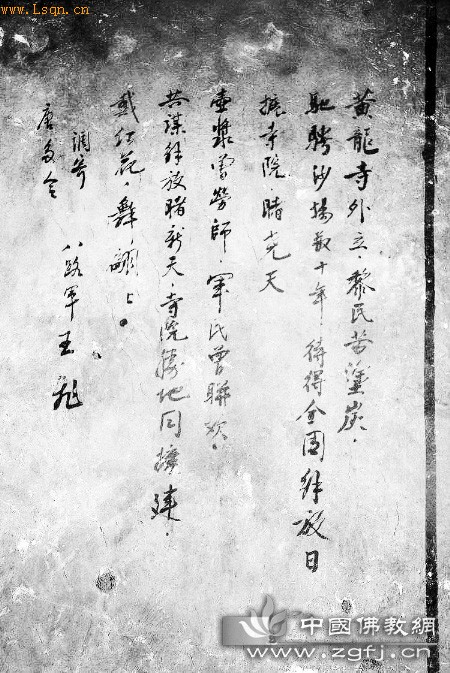 www.lsqn.cn
黄龍寺外立，黎民苦塗炭，
馳騁沙揚数十年，待得全国解放日
振寺院，睹光天
壺漿曾勞師，軍民曾聯欢，
共謀解放睹新天，寺院勝地同擴建，
戴红花，舞翩上。
調寄
唐多令
八路军王
中國佛教網
www.zgfj.cn